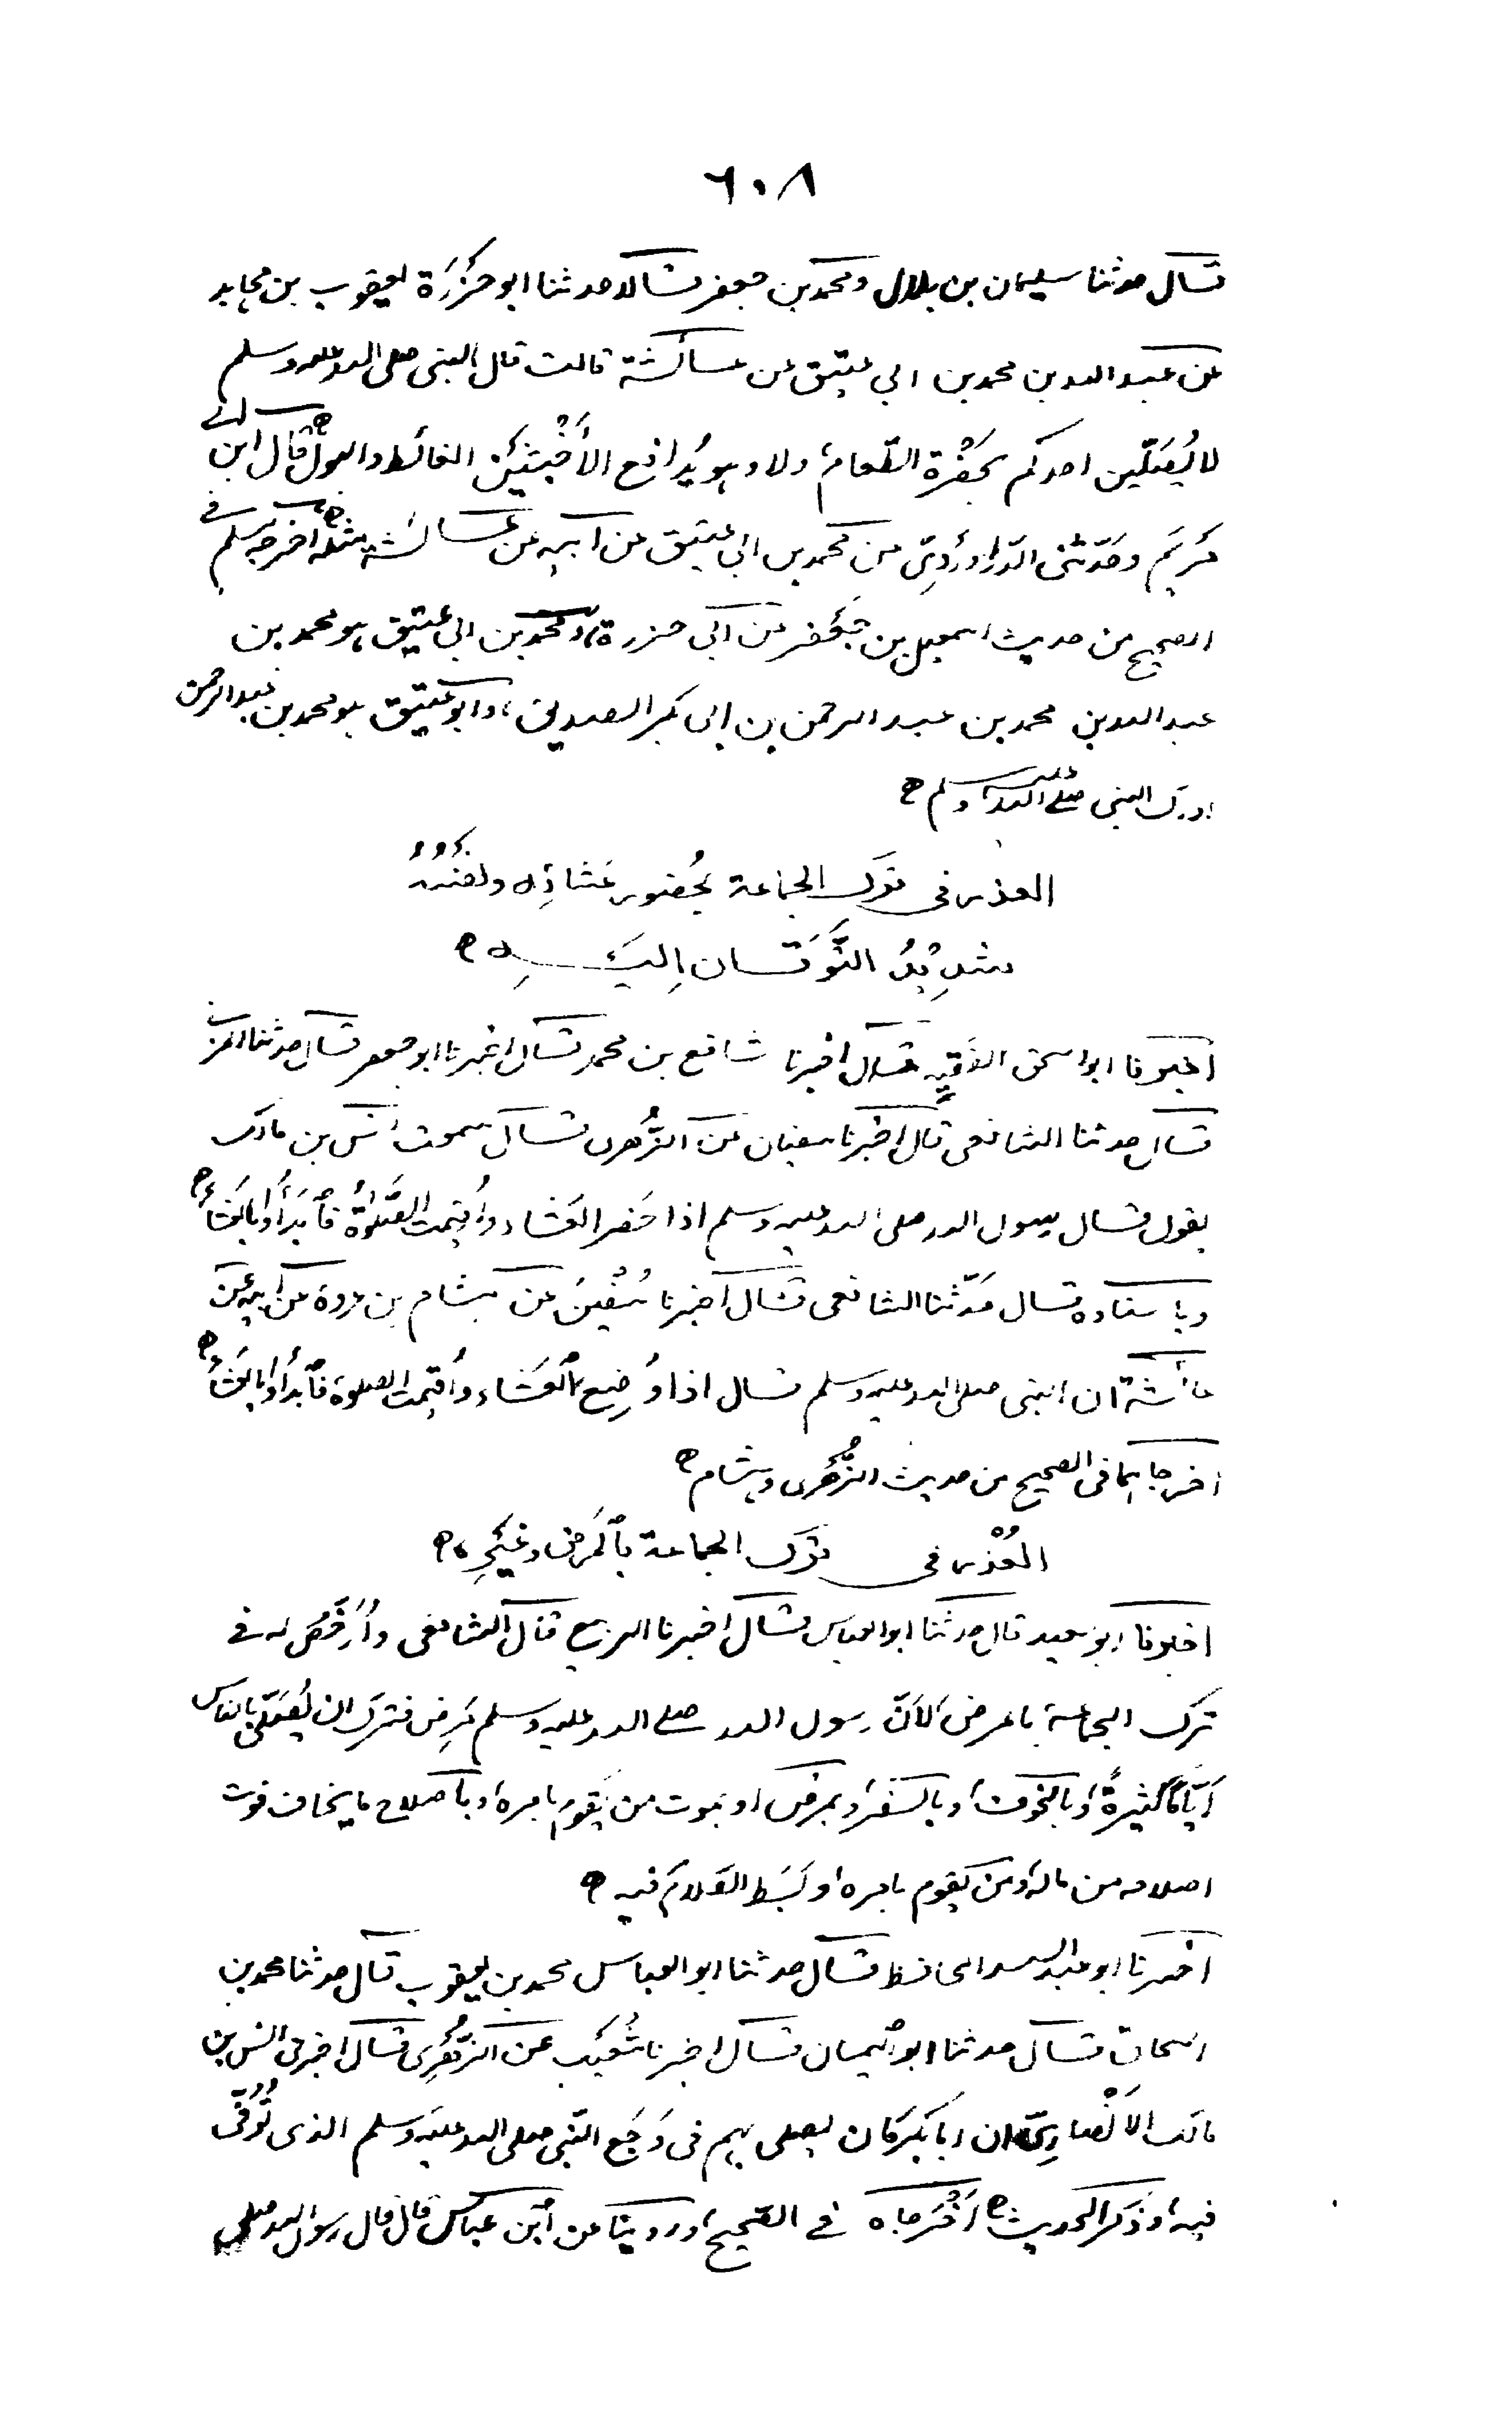 ٦٠٨
قال حدثنا سليمان بن بلال ومحمد بن جعفر قالا حدثنا ابو حَزْرَة يعقوب بن مجاهد
عن عبد الله بن محمد بن ابي عتيق عن عائشة قالت قال النبي صلى الله عليه وسلم
لا يُصَلّين احدكم بحَضْرة الطّعام ولا وهو يُدافع الأَخْبثَيْن الغائط والبول قال ابن ابي
مريم وحَدّثني الدّراورديّ عن محمد بن ابي عتيق عن ابيه عن عائشة مثله اخرجه مسلم في
الصحيح من حديث اسمعيل بن جَعْفر عن ابي حزرة، ومحمد بن ابي عتيق هو محمد بن
عبد الله بن محمد بن عبد الرحمن بن ابي بكر الصديق، وابو عتيق هو محمد بن عبد الرحمن
ادرك النبي صلى الله عليه وسلم
العذر في ترك الجماعة بحُضور عَشائِه ونفسُه
شَدِيْدُ التَّوَقَان اِليَه
اخبرنا ابو اسحق الفقيه قال اخبرنا شافع بن محمد قال اخبرنا ابو جعفر قال حدثنا المزني
قال حدثنا الشافعي قال اخبرنا سفيان عن الزُّهري قال سمعت انس بن مالك
يقول قال رسول الله صلى الله عليه وسلم اذا حَضَر العَشاء وأُقيمت الصَّلوةُ فٱبْدَأُوا بالعَشاء
وباسناده قال حَدّثنا الشافعي قال اخبرنا سُفْيٰن عن هشام بن عروة عن ابيه عن
عائشة ان النبي صلى الله عليه وسلم قال اذا وُضِع ٱلعَشَاء وأُقيمت الصلوة فٱبدأُوا بالعَشاء
اخرجاهما في الصحيح من حديث الزُّهْرى وهشام
العُذْر في ترك الجماعة بٱلمَرض وغَيْرِه
اخبرنا ابو سعيد قال حدثنا ابو العباس قال اخبرنا الربيع قال الشافعي وأُرَخّصُ له في
ترك الجماعة بالمرض لاَنّ رسول الله صلى الله عليه وسلم مَرِض فترك ان يُصَلّي بالناس
اَيّاماً كثيرةً وبالخوف وبالسفر وبمرض او بموت من يقوم بامره او باصلاح ما يخاف فوت
اصلاحه من ماله ومَن يقوم بامره وبَسَط الكلام فيه
اخبرنا ابو عبد الله الحافظ قال حدثنا ابو العباس محمد بن يعقوب قال حدثنا محمد بن
اسحاق قال حدثنا ابو اليمان قال اخبرنا شُعَيْب عن الزّهْرِى قال اخبرني انس بن
مالك الاَنْصاريّ ان ابا بكر كان يصلي بهم في وَجَع النّبي صلى الله عليه وسلم الذي تُوُفّي
فيه وذَكَر الحديث اَخْرَجاه في الصّحيح ورويناَ عن ٱبن عباس قال قال رسول الله صلى